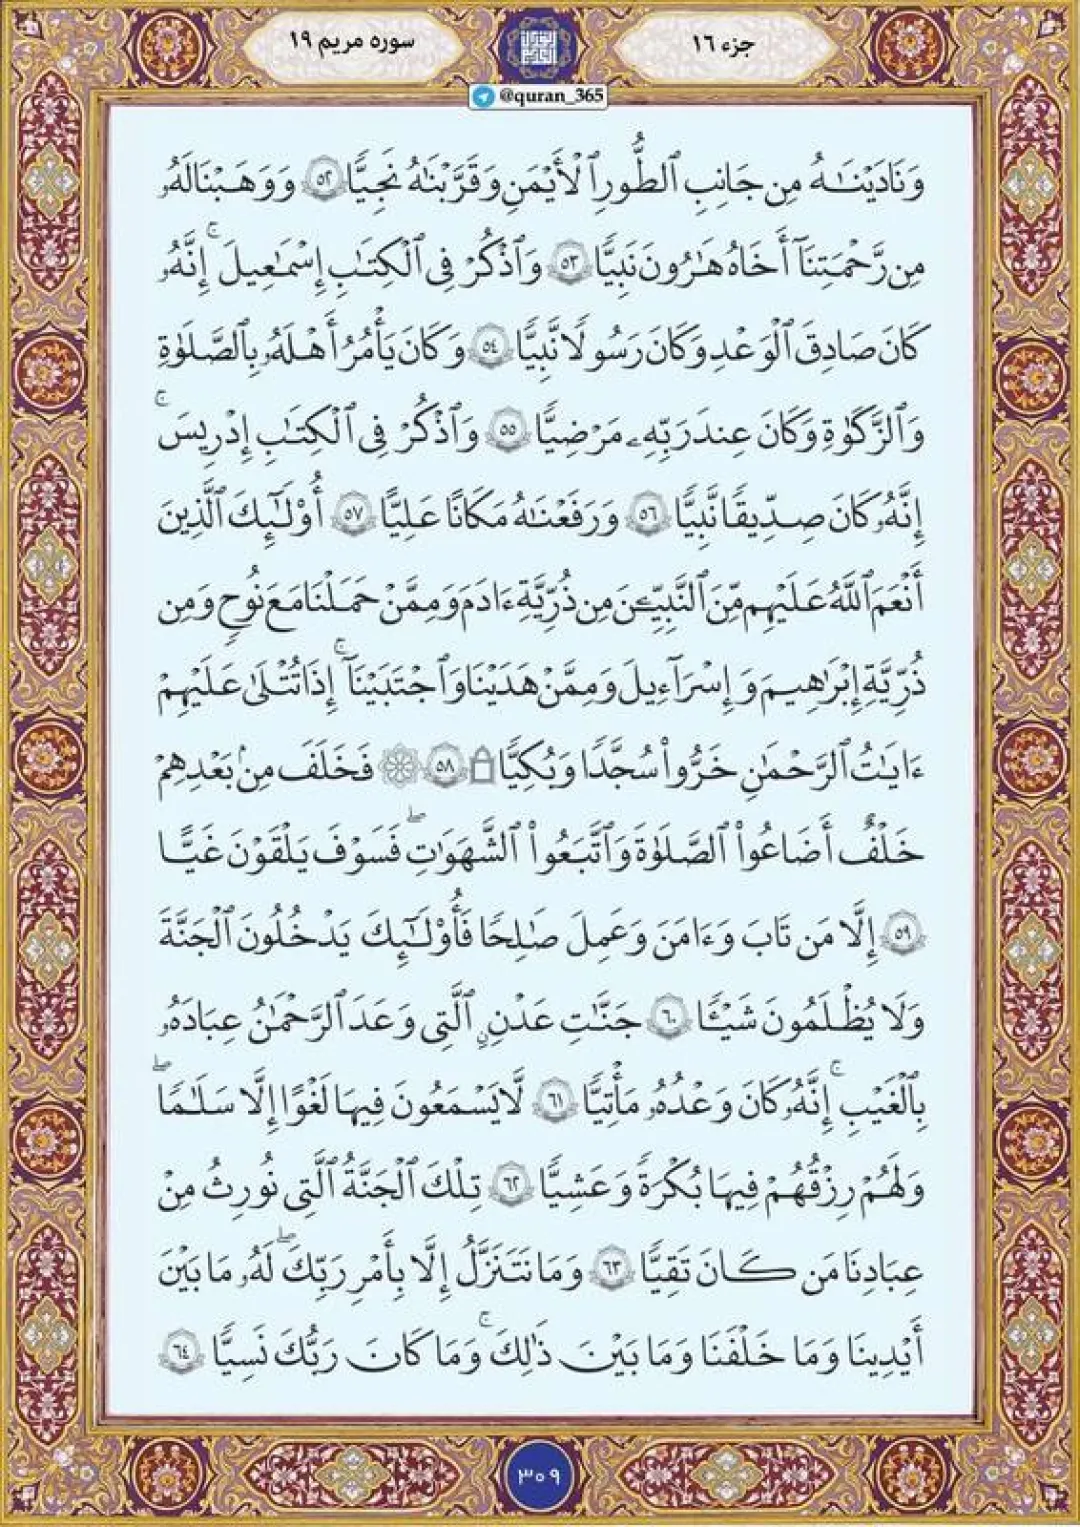 جزء ١٦
سوره مريم ١٩
@quran_365
وَنَٰدَيۡنَٰهُ مِن جَانِبِ ٱلطُّورِ ٱلۡأَيۡمَنِ وَقَرَّبۡنَٰهُ نَجِيّٗا ٥٢ وَوَهَبۡنَا لَهُۥ
مِن رَّحۡمَتِنَآ أَخَاهُ هَٰرُونَ نَبِيّٗا ٥٣ وَٱذۡكُرۡ فِي ٱلۡكِتَٰبِ إِسۡمَٰعِيلَۚ إِنَّهُۥ
كَانَ صَادِقَ ٱلۡوَعۡدِ وَكَانَ رَسُولٗا نَّبِيّٗا ٥٤ وَكَانَ يَأۡمُرُ أَهۡلَهُۥ بِٱلصَّلَوٰةِ
وَٱلزَّكَوٰةِ وَكَانَ عِندَ رَبِّهِۦ مَرۡضِيّٗا ٥٥ وَٱذۡكُرۡ فِي ٱلۡكِتَٰبِ إِدۡرِيسَۚ
إِنَّهُۥ كَانَ صِدِّيقٗا نَّبِيّٗا ٥٦ وَرَفَعۡنَٰهُ مَكَانًا عَلِيًّا ٥٧ أُوْلَٰٓئِكَ ٱلَّذِينَ
أَنۡعَمَ ٱللَّهُ عَلَيۡهِم مِّنَ ٱلنَّبِيِّـۧنَ مِن ذُرِّيَّةِ ءَادَمَ وَمِمَّنۡ حَمَلۡنَا مَعَ نُوحٖ وَمِن
ذُرِّيَّةِ إِبۡرَٰهِيمَ وَإِسۡرَٰٓءِيلَ وَمِمَّنۡ هَدَيۡنَا وَٱجۡتَبَيۡنَآۚ إِذَا تُتۡلَىٰ عَلَيۡهِمۡ
ءَايَٰتُ ٱلرَّحۡمَٰنِ خَرُّواْ سُجَّدٗا وَبُكِيّٗا ٥٨ فَخَلَفَ مِنۢ بَعۡدِهِمۡ
خَلۡفٌ أَضَاعُواْ ٱلصَّلَوٰةَ وَٱتَّبَعُواْ ٱلشَّهَوَٰتِۖ فَسَوۡفَ يَلۡقَوۡنَ غَيًّا
٥٩ إِلَّا مَن تَابَ وَءَامَنَ وَعَمِلَ صَٰلِحٗا فَأُوْلَٰٓئِكَ يَدۡخُلُونَ ٱلۡجَنَّةَ
وَلَا يُظۡلَمُونَ شَيۡـٔٗا ٦٠ جَنَّٰتِ عَدۡنٍ ٱلَّتِي وَعَدَ ٱلرَّحۡمَٰنُ عِبَادَهُۥ
بِٱلۡغَيۡبِۚ إِنَّهُۥ كَانَ وَعۡدُهُۥ مَأۡتِيّٗا ٦١ لَّا يَسۡمَعُونَ فِيهَا لَغۡوًا إِلَّا سَلَٰمٗاۖ
وَلَهُمۡ رِزۡقُهُمۡ فِيهَا بُكۡرَةٗ وَعَشِيّٗا ٦٢ تِلۡكَ ٱلۡجَنَّةُ ٱلَّتِي نُورِثُ مِنۡ
عِبَادِنَا مَن كَانَ تَقِيّٗا ٦٣ وَمَا نَتَنَزَّلُ إِلَّا بِأَمۡرِ رَبِّكَۖ لَهُۥ مَا بَيۡنَ
أَيۡدِينَا وَمَا خَلۡفَنَا وَمَا بَيۡنَ ذَٰلِكَۚ وَمَا كَانَ رَبُّكَ نَسِيّٗا ٦٤
٣٠٩